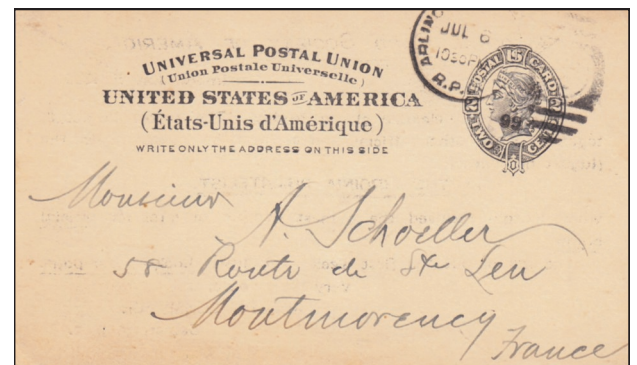 UNIVERSAL POSTAL UNION
(Union Postale Universelle)
UNITED STATES OF AMERICA
(États-Unis d'Amérique)
WRITE ONLY THE ADDRESS ON THIS SIDE
JUL 6
1030P
R.P.
99
POSTAL CARD
TWO CENTS
Monsieur
A. Schoeller
58 Route de Ste Leu
Montmorency
France